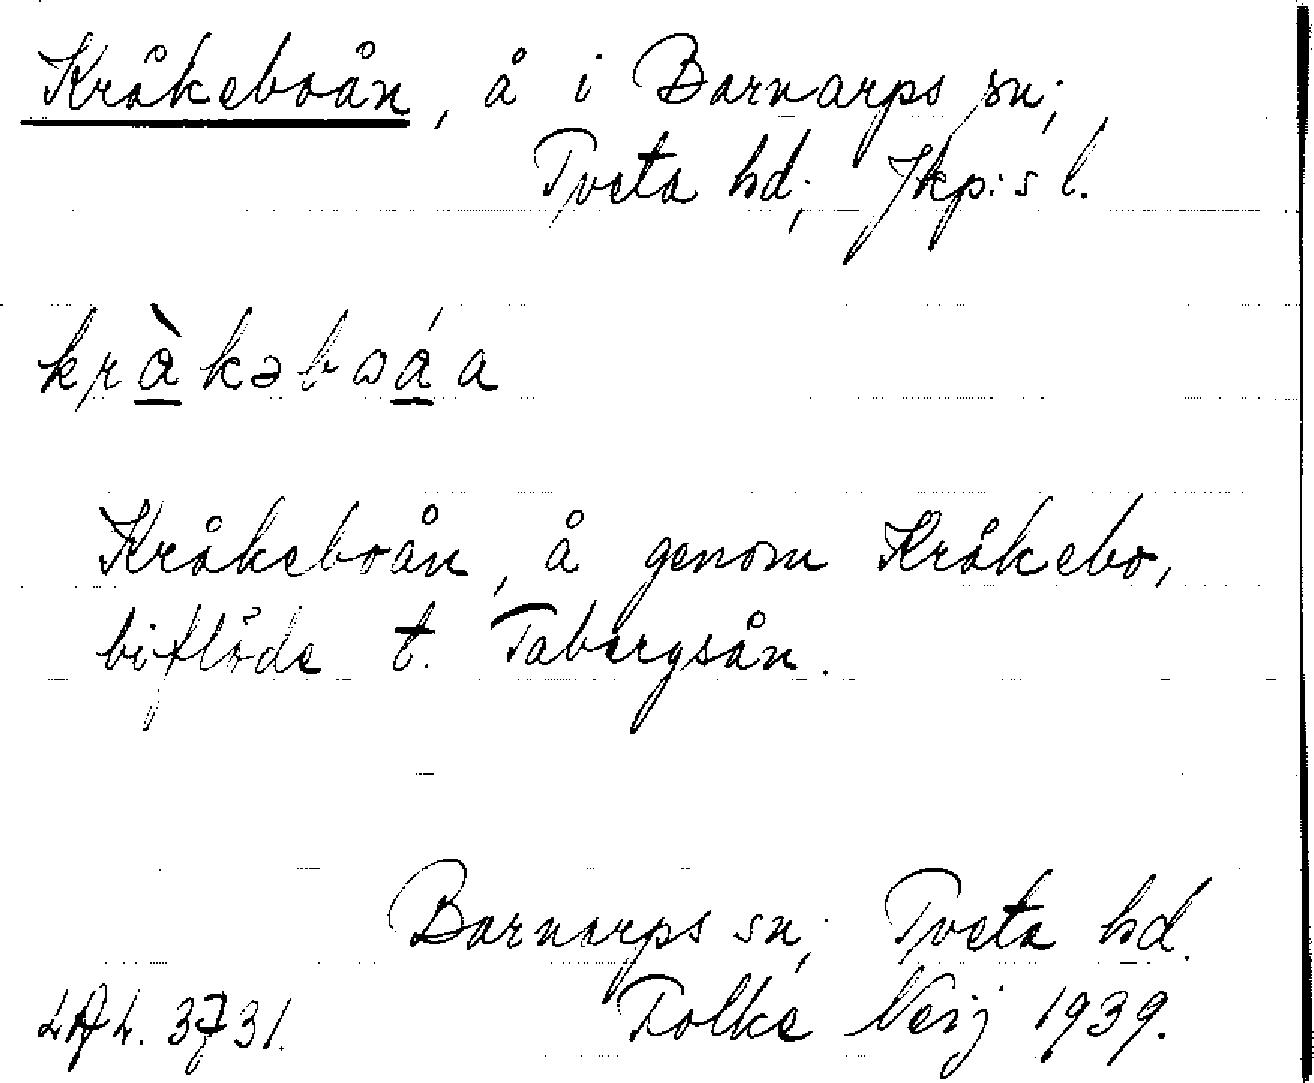 Kråkeboån, å i Barnarps sn;
Tveta hd; Jkp:s l.
kràkəbωáa
Kråkeboån, å genom Kråkebo,
biflöde t. Tabergsån.
Barnarps sn; Tveta hd.
LAL. 3731. Folke Neij 1939.